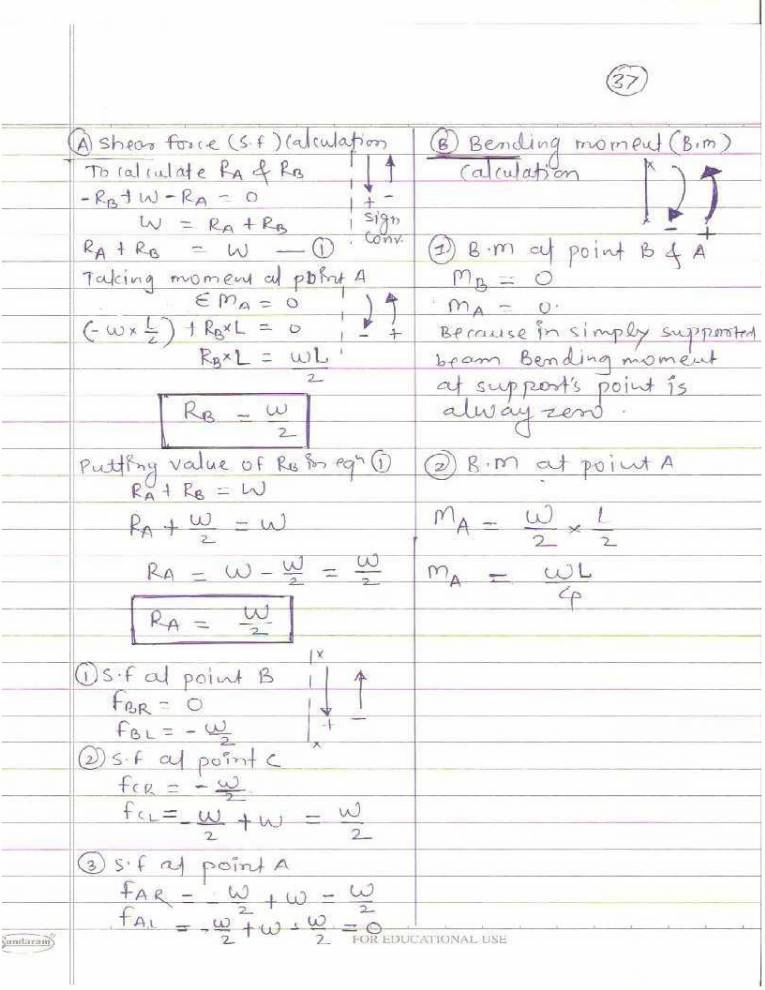 37
(A) Shear force (S.f) Calculation
To calculate RA & RB
-RB + W - RA = 0
W = RA + RB
RA + RB = W — (1)
+ -
sign
conv.
Taking moment at point A
Σ MA = 0
(-W × L/2) + RB×L = 0
RB×L = WL/2
- +
RB = W/2
Putting value of RB in eqn (1)
RA + RB = W
RA + W/2 = W
RA = W - W/2 = W/2
RA = W/2
(1) S.f at point B
fBR = 0
fBL = - W/2
x
+ -
x
(2) S.f at point C
fCR = - W/2
fCL = - W/2 + W = W/2
(3) S.f at point A
fAR = - W/2 + W = W/2
fAL = - W/2 + W - W/2 = 0
(B) Bending moment (B.m)
Calculation
x
x - +
(1) B.M at point B & A
MB = 0
MA = 0.
Because in simply supported
beam Bending moment
at support's point is
alway zero.
(2) B.M at point A
MA = W/2 × L/2
MA = WL/4
Sundaram
FOR EDUCATIONAL USE